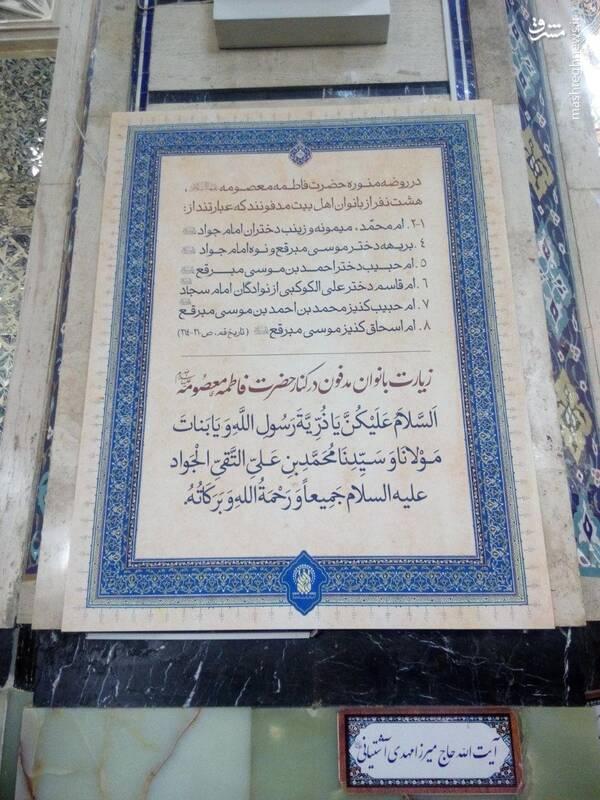 مشرق
mashreghnews.ir
در روضه منوره حضرت فاطمه معصومه علیهاالسلام،
هشت نفر از بانوان اهل بیت مدفونند که عبارتند از:
۱-۳. ام محمّد، میمونه و زینب دختران امام جواد
۴. بریهه دختر موسی مبرقع و نوه امام جواد
۵. ام حبیب دختر احمد بن موسی مبرقع
۶. ام قاسم دختر علی الکوکبی از نوادگان امام سجاد
۷. ام حبیب کنیز محمد بن احمد بن موسی مبرقع
۸. ام اسحاق کنیز موسی مبرقع (تاریخ قم، ص ۲۱۰-۲۱۴)
زیارت بانوان مدفون در کنار حضرت فاطمه معصومه
اَلسَّلامُ عَلَیْکُنَّ یا ذُرِّیَّةَ رَسُولِ اللَّهِ وَ یا بَناتَ
مَوْلانا وَ سَیِّدِنا مُحَمَّدِ بنِ عَلیٍّ التَّقِیِّ الْجَوادِ
علیه السلام جَمِیعاً وَ رَحْمَةُ اللهِ وَ بَرَکاتُهُ.
آیت الله حاج میرزا مهدی آشتیانی